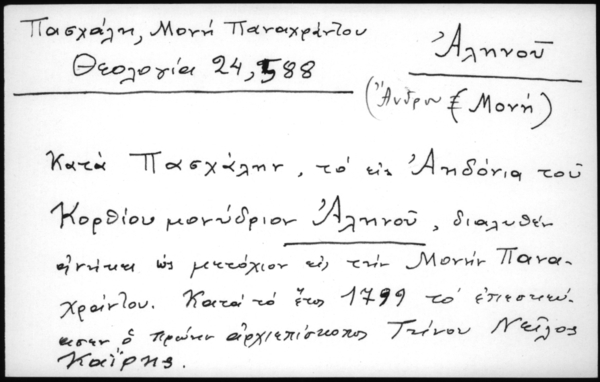 Πασχάλη, Μονή Παναχράντου
Θεολογία 24, 588
Ἀληνοῦ
(Ἄνδρου Ε Μονή)
Κατά Πασχάλην, τό εἰς Ἀηδόνια τοῦ
Κορθίου μονύδριον Ἀληνοῦ, διαλυθέν
ἀνῆκε ὡς μετόχιον εἰς τήν Μονήν Πανα-
χράντου. Κατά τό ἔτος 1799 τό ἐπεσκεύ-
ασεν ὁ πρώην ἀρχιεπίσκοπος Τήνου Νεῖλος
Καΐρης.